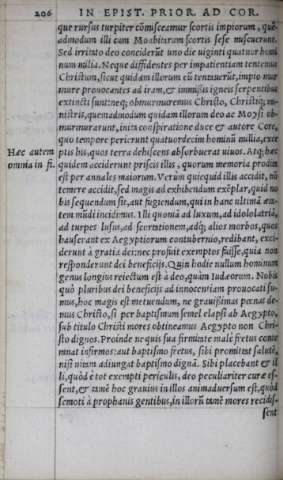 206 IN EPIST. PRIOR. AD COR.
que rursus turpiter cōmisceamur scortis impiorum, quē-
admodum illi cum Moabitarum scortis sese miscuerunt.
Sed irritato deo conciderūt uno die uiginti quatuor homi
num millia. Neque diffidentes per impatientiam tentemus
Christum, sicut quidam illorum eū tentauerūt, impio mur
mure prouocantes ad iram, & immissis igneis serpentibus
extincti sunt: neq; obmurmuremus Christo, Christiq; mi-
nistris, quemadmodum quidam illorum deo ac Mosi ob-
murmurarunt, inita conspiratione duce & autore Core,
quo tempore perierunt quatuordecim hominū millia, exce
Hæc autem
omnia in fi.
ptis his, quos terra dehiscens absorbuerat uiuos. Atq; hæc
quidem acciderunt priscis illis, quorum memoria prodita
est per annales maiorum. Verūm quicquid illis accidit, nō
temere accidit, sed magis ad exhibendum exēplar, quid no
bis sequendum sit, aut fugiendum, qui in hanc ultimā æta-
tem mūdi incidimus. Illi quoniā ad luxum, ad idololatriā,
ad turpes lusus, ad scortationem, adq; alios morbos, quos
hauserant ex Aegyptiorum contubernio, redibant, exci-
derunt à gratia dei: nec profuit exemptos fuisse, quia non
responderunt dei beneficijs. Quin hodie nullum hominum
genus longius reiectum est à deo, quàm Iudæorum. Nobis
quò pluribus dei beneficijs ad innocentiam prouocati su-
mus, hoc magis est metuendum, ne grauissimas pœnas de-
mus Christo, si per baptismum semel elapsi ab Aegypto,
sub titulo Christi mores obtineamus Aegypto non Chri-
sto dignos. Proinde ne quis sua firmitate malè fretus conte
mnat infirmos: aut baptismo fretus, sibi promittat salutē,
nisi uitam adiungat baptismo dignā. Sibi placebant & il
li, quòd è tot exempti periculis, deo peculiariter curæ es-
sent, & tamē hoc grauius in illos animaduersum est, quòd
semoti à prophanis gentibus, in illorū tamē mores recidis-
sent